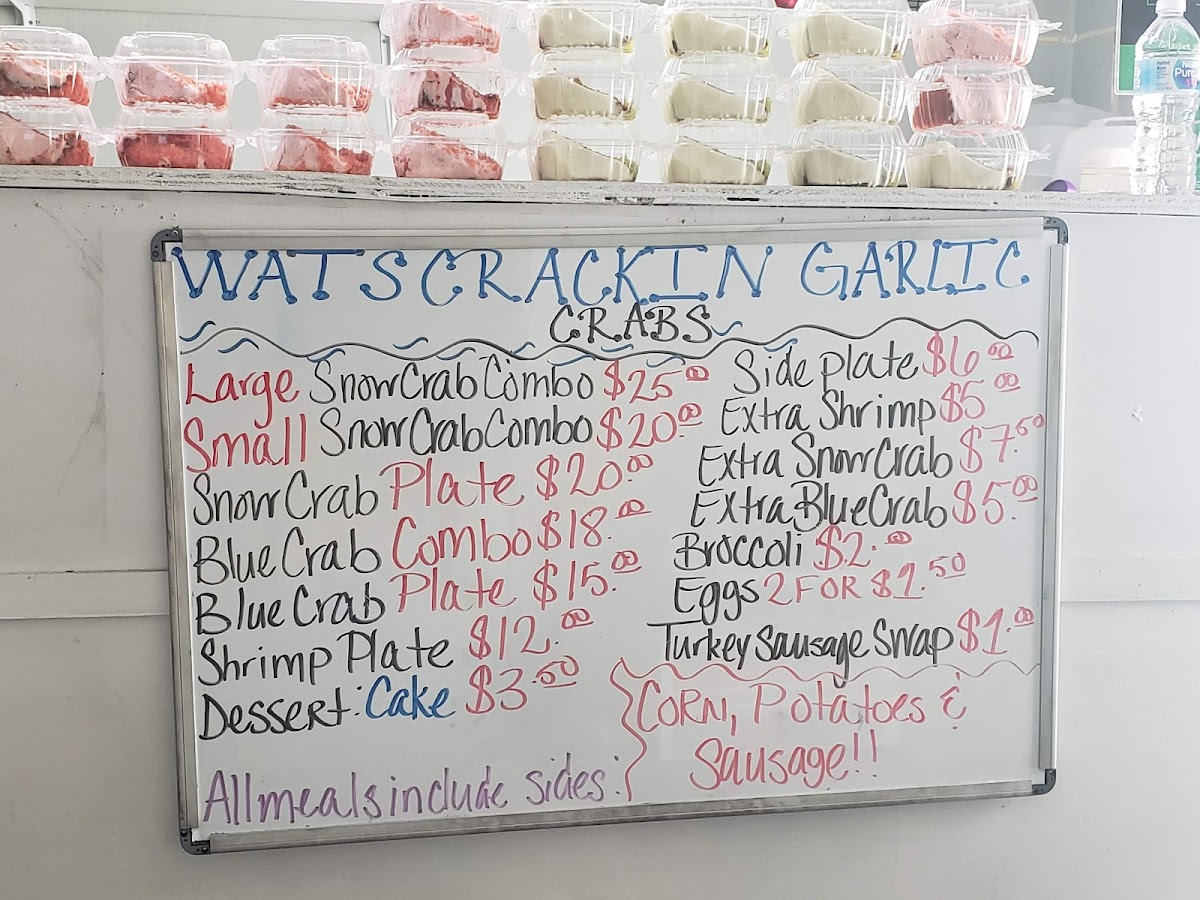 WATSCRACKIN GARLIC
CRABS
Large Snow Crab Combo $25.00
Small Snow Crab Combo $20.00
Snow Crab Plate $20.00
Blue Crab Combo $18.00
Blue Crab Plate $15.00
Shrimp Plate $12.00
Dessert: Cake $3.00
All meals include sides:
Side plate $6.00
Extra Shrimp $5.00
Extra Snow Crab $7.50
Extra Blue Crab $5.00
Broccoli $2.00
Eggs 2 FOR $1.50
Turkey Sausage Swap $1.00
CORN, Potatoes &
Sausage!!